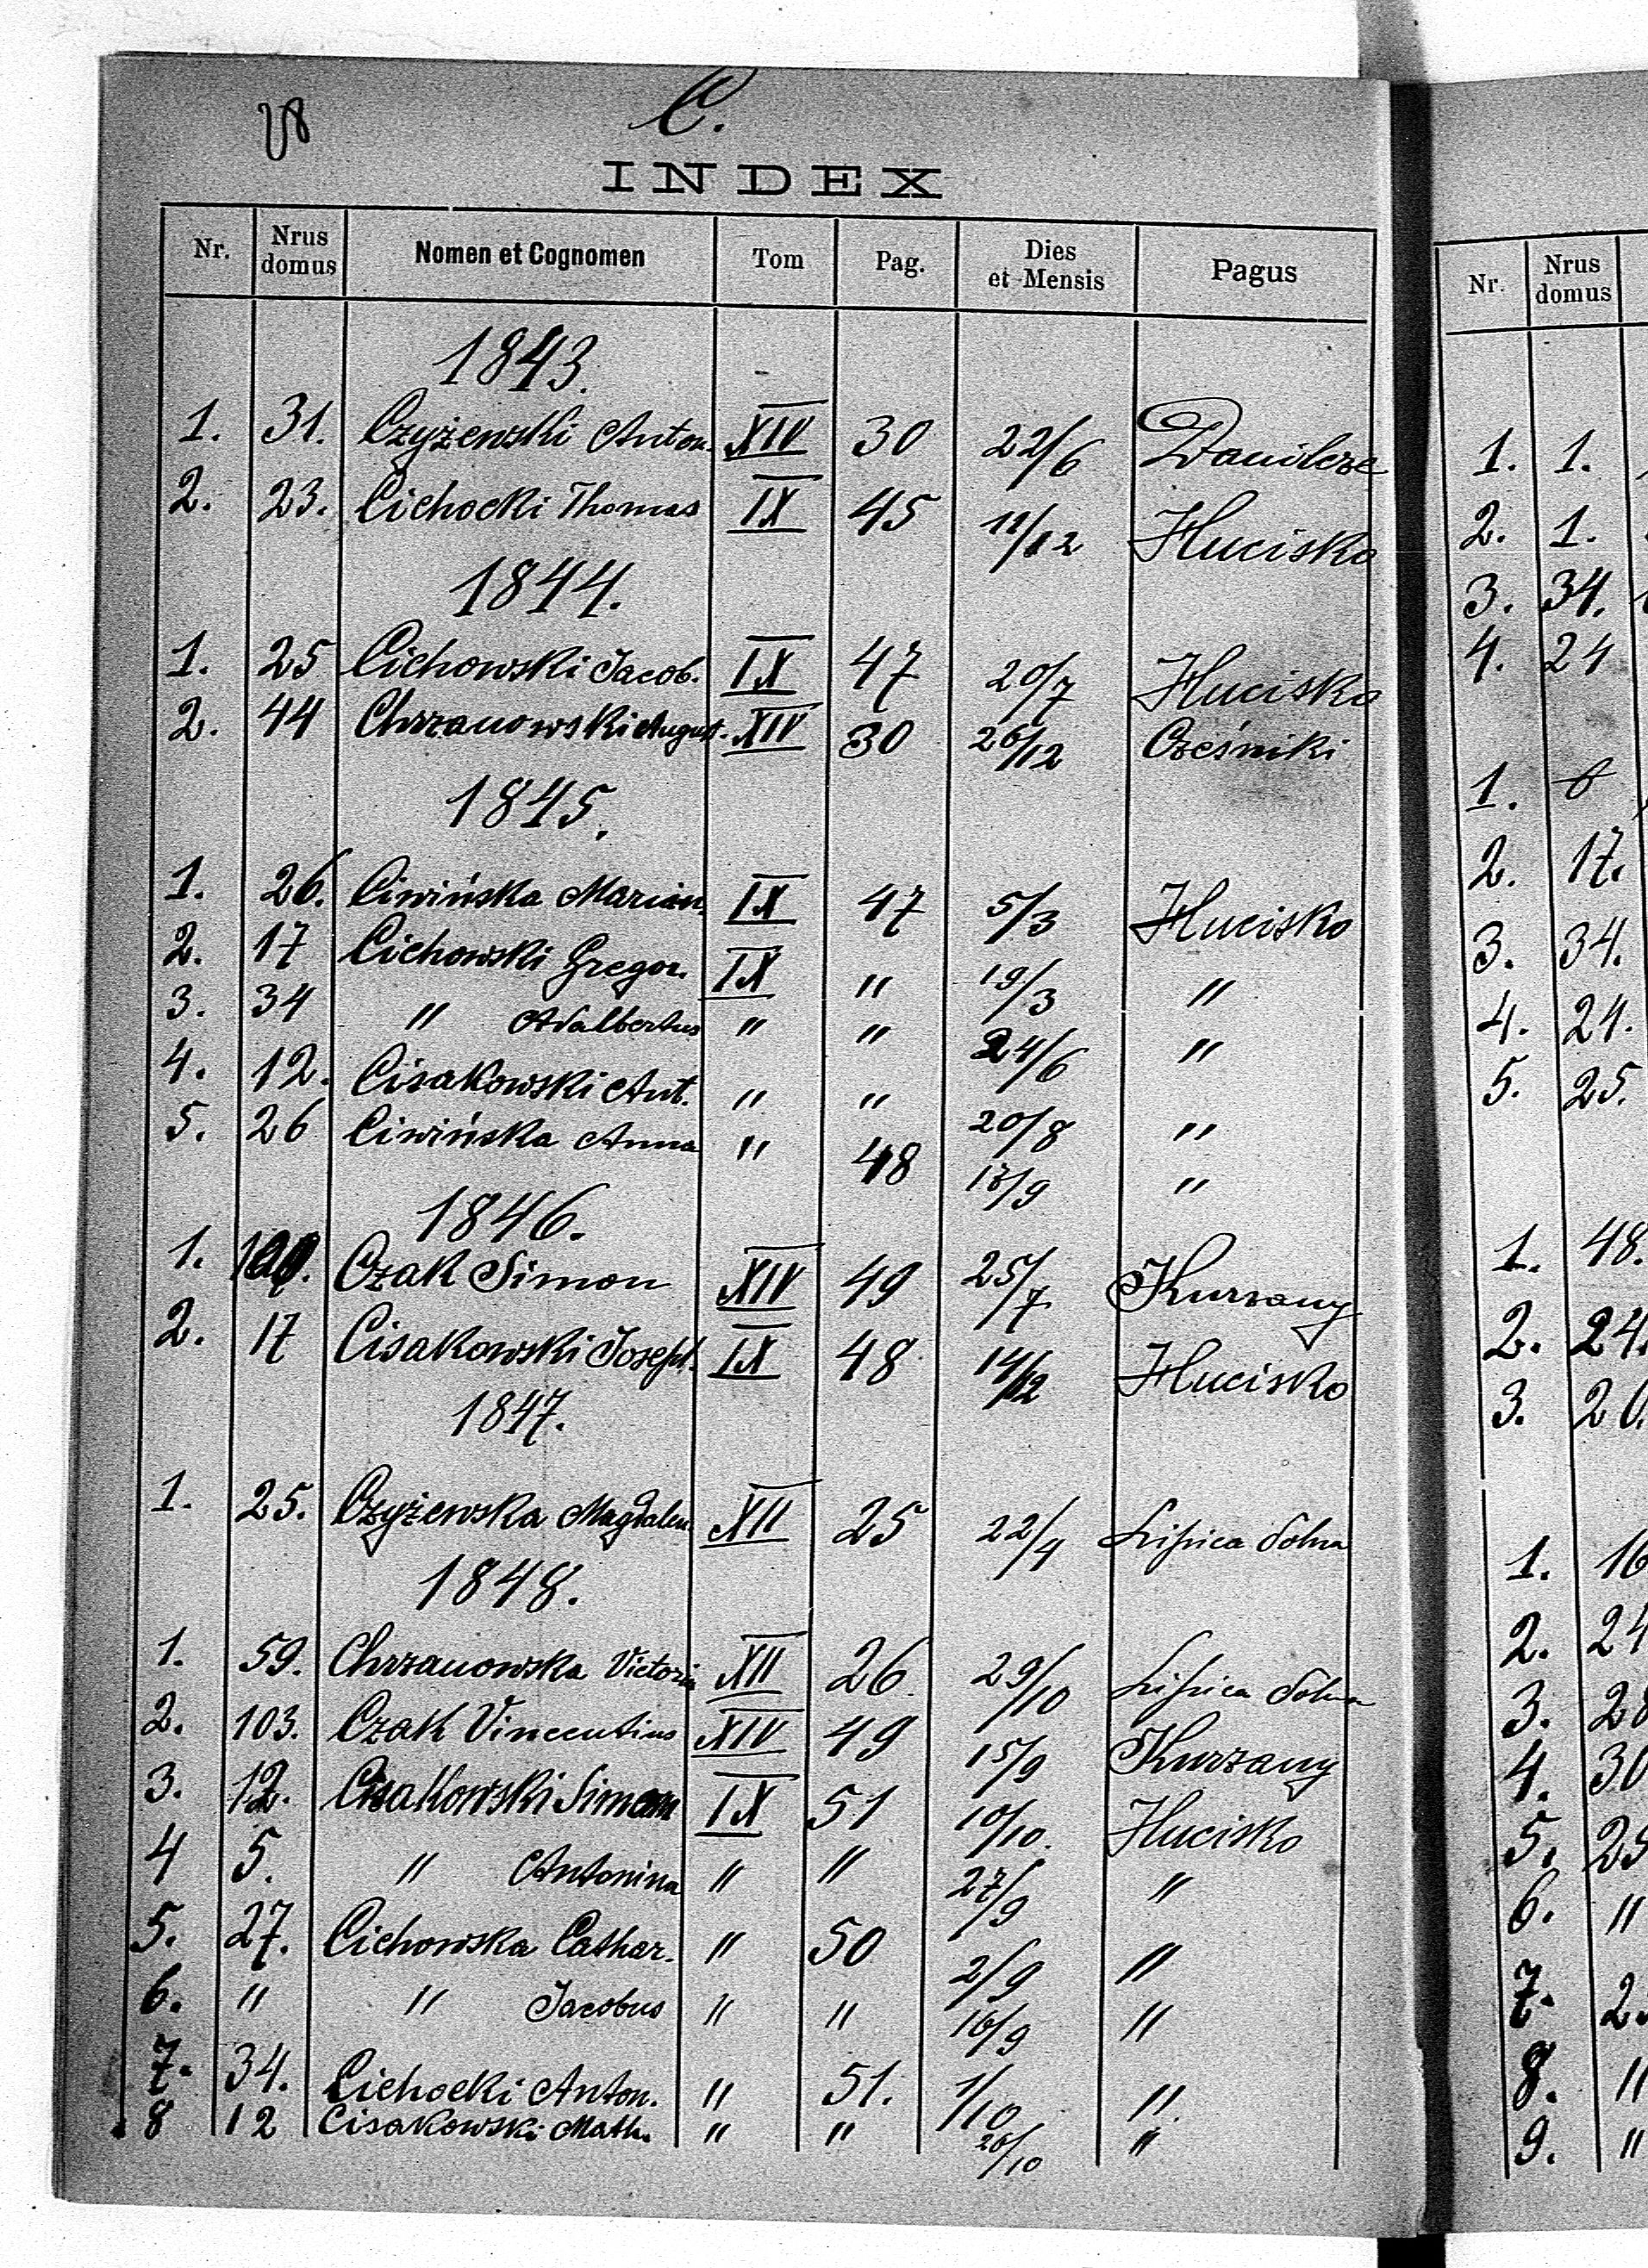 C.
INDEX
Nr. Nrus domus Nomen et Cognomen Tom Pag. Dies et Mensis Pagus
1843.
1. 31. Czyżewski Anton. XIV 30 22/6 Danilcze
2. 23. Cichocki Thomas IX 45 11/12 Hucisko
1844.
1. 25 Cichowski Jacob. IX 47 20/7 Hucisko
2. 44 Chrzanowski August. XIV 30 26/12 Cześniki
1845.
1. 26. Ciwińska Marian. IX 47 5/3 Hucisko
2. 17 Cichowski Gregor. IX " 19/3 "
3. 34 " Adalbertus " " 24/6 "
4. 12. Cisakowski Ant. " " 20/8 "
5. 26 Ciwińska Anna " 48 "
1846.
1. Czak Simon XIV 49 25/7 Kurzany
2. 17 Cisakowski Joseph. IX 48 14/12 Hucisko
1847.
1. 25. Czyżewska Magdalen. XII 25 22/4 Lipica dolna
1848.
1. 59. Chrzanowska Victoria XII 26. 29/10 Lipica dolna
2. 103. Czak Vincentius XIV 49 15/9 Kurzany
3. 12. Cisakowski Simon IX 51 10/10. Hucisko
4 5. " Antonina " " 27/9 "
5. 27. Cichowska Cathar. " 50 2/9 "
6. " " Jacobus " " 16/9 "
7. 34. Cichocki Anton. " 51. 1/10 "
8 12 Cisakowski Math. " " 26/10 "
Nr. Nrus domus
1. 1.
2. 1.
3. 34.
4. 24
1. 6
2. 17.
3. 34.
4. 24.
5. 25.
1. 48.
2. 24.
3. 20.
1. 16
2. 24
3. 28
4. 30
5. 25
6. "
7.
8. "
9. "